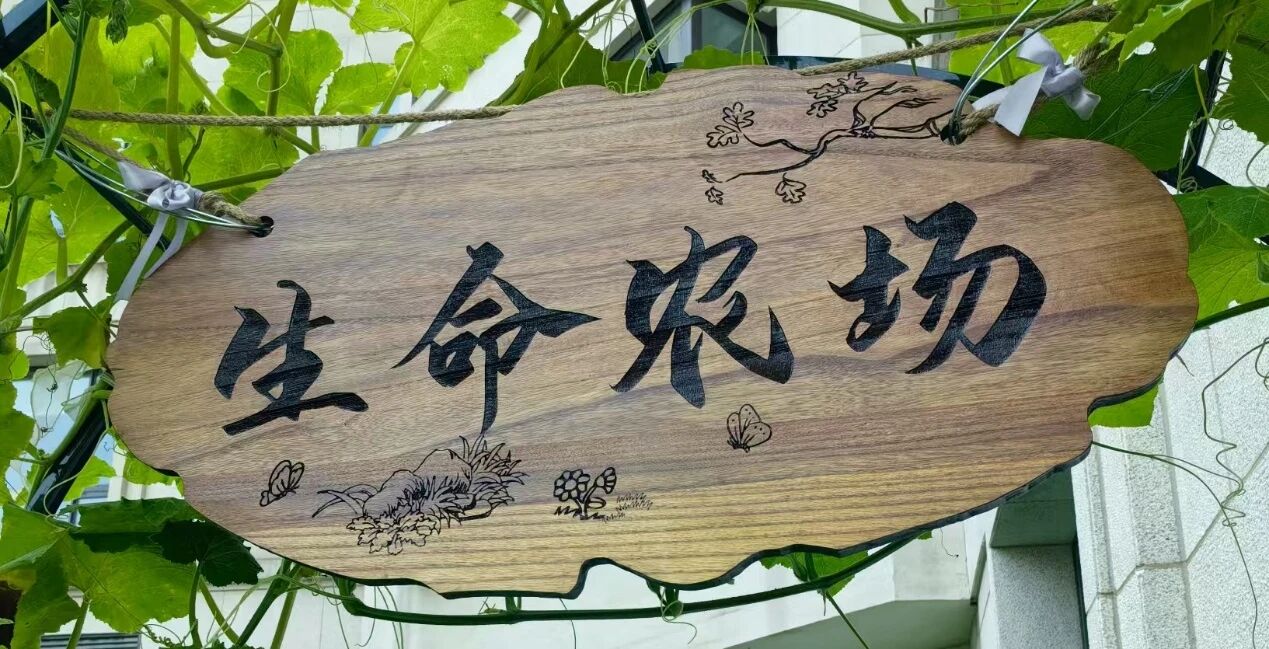 生命农场